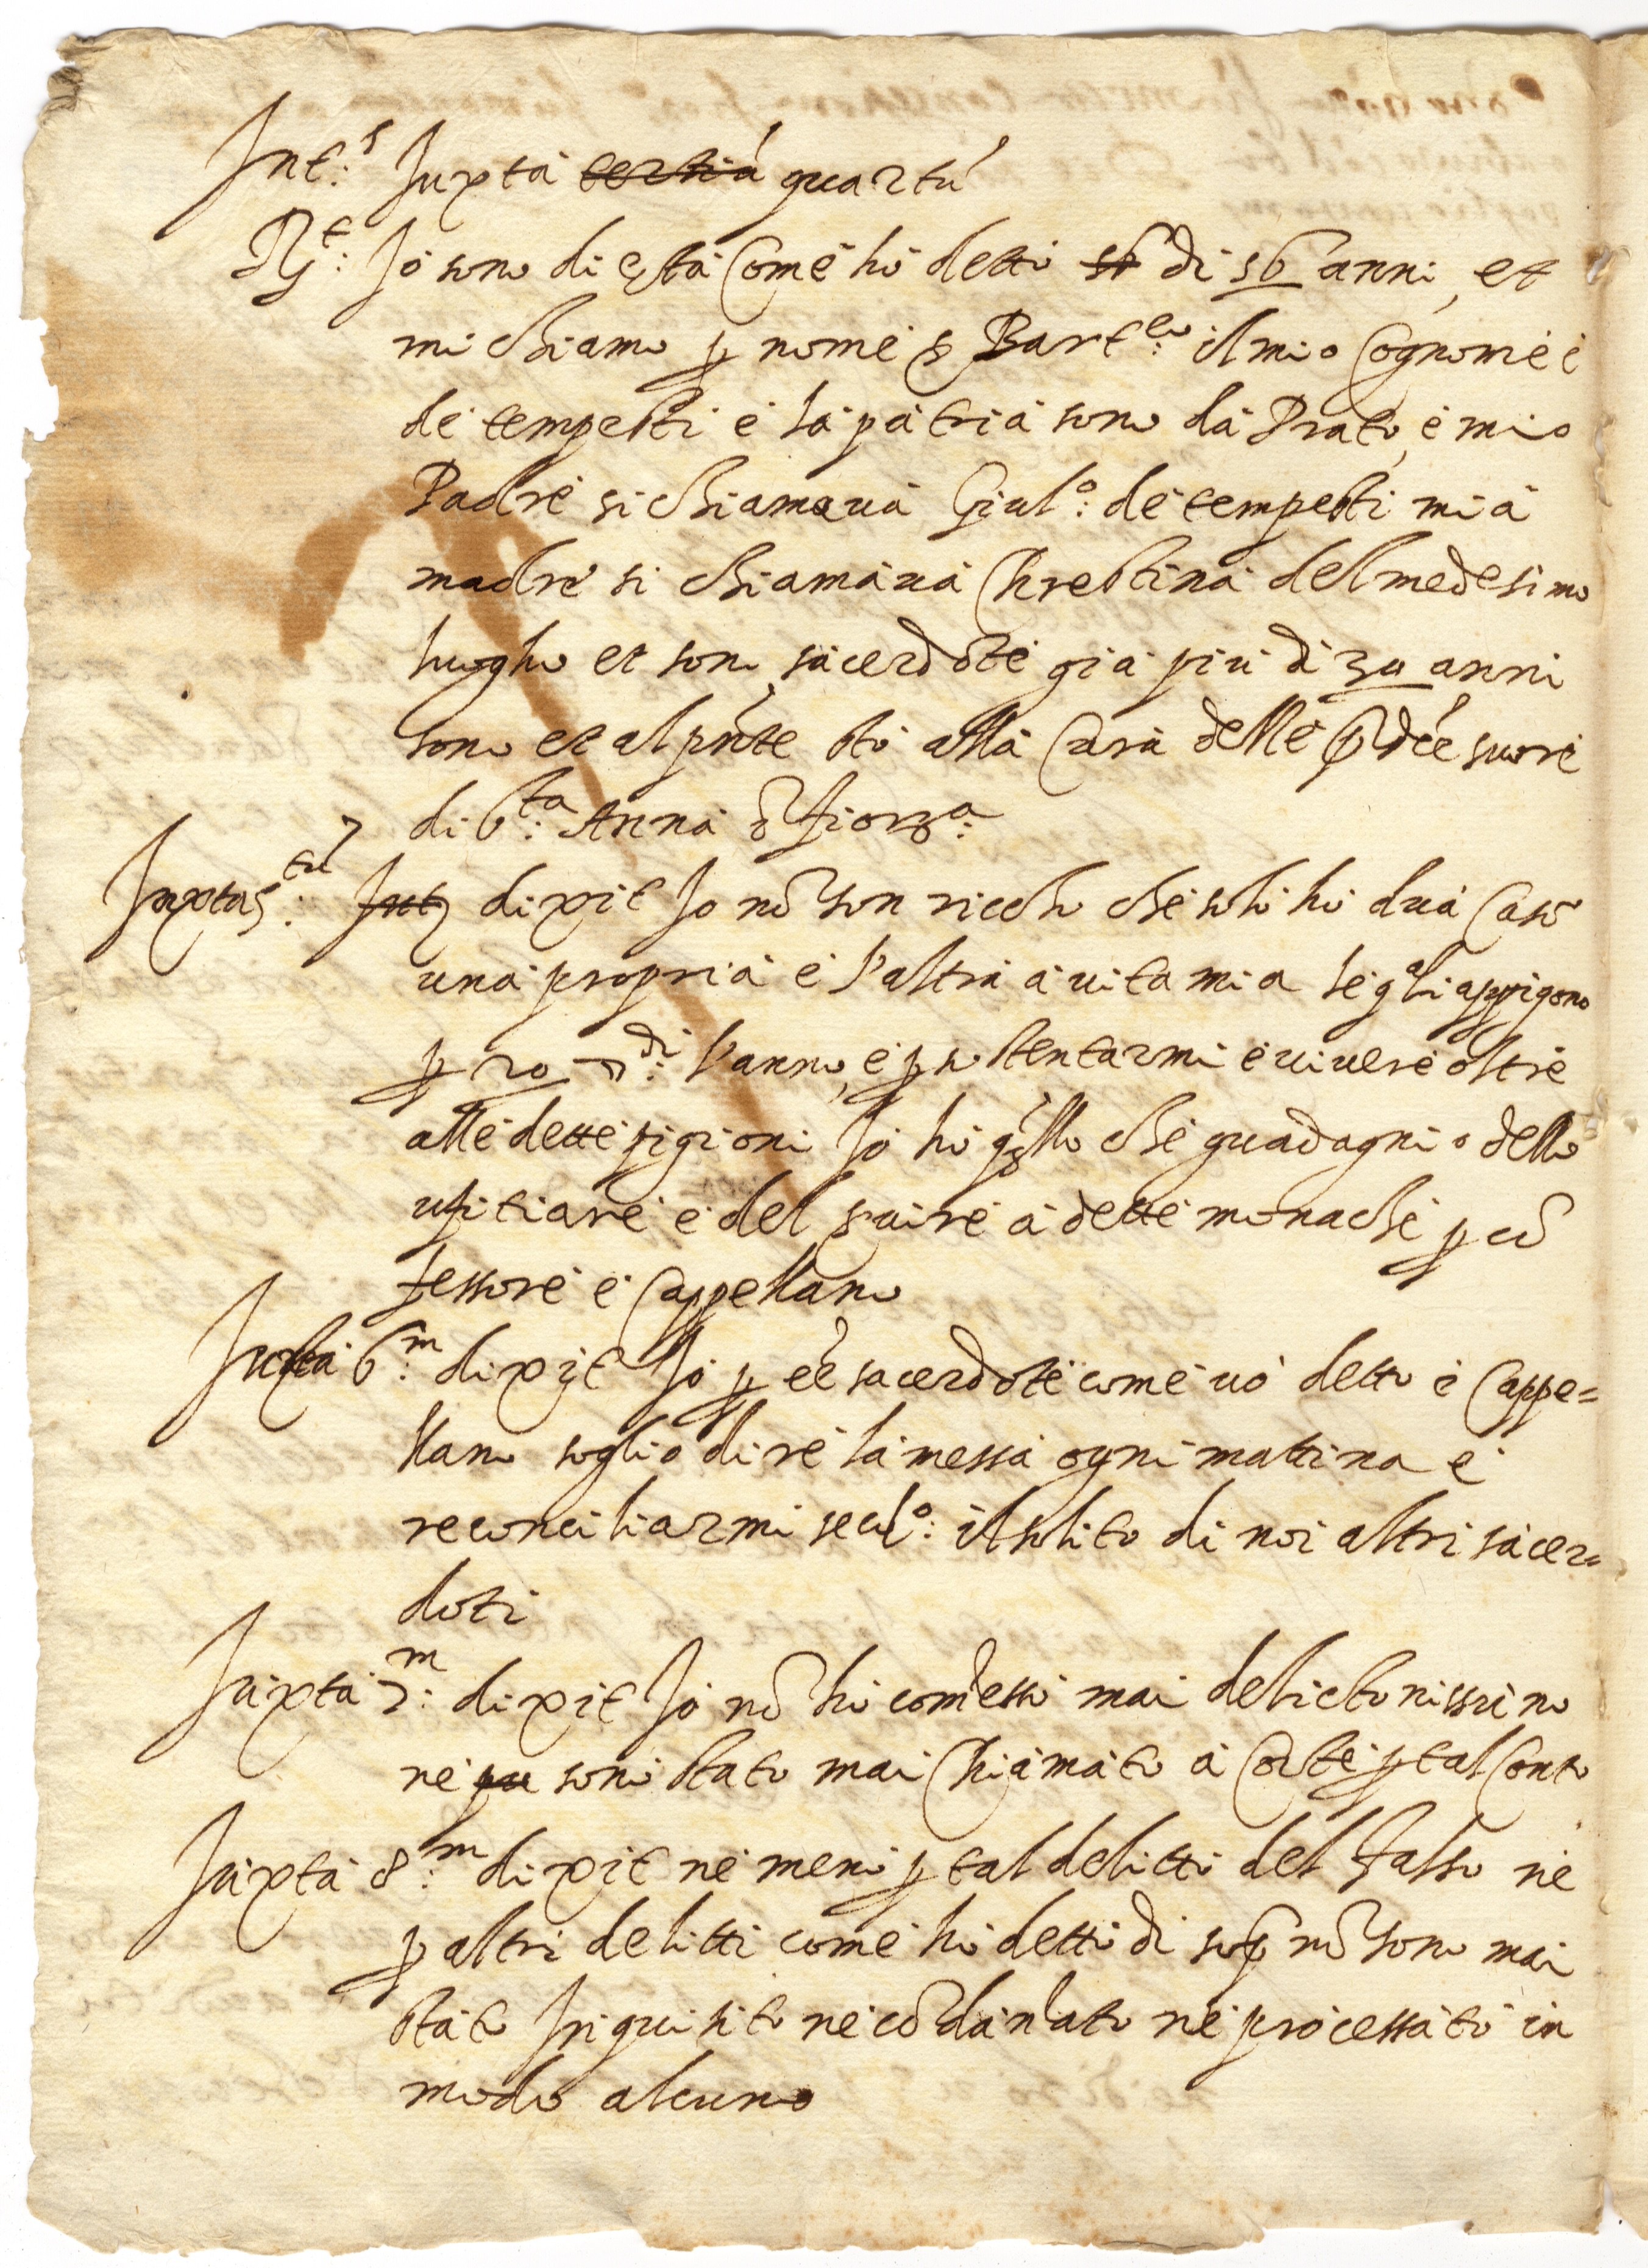 Int:s Juxta tertiá quartú
Rt: Jo sono di età come hò detto 56 di 56 anni, et
mi chiamo p nome s Bart:eo il mio cognome è
de tempesti e la patria sono da Prato, e mio
Padre si chiamava Giul:o de tempesti mia
madre si chiamava Chrestina del medesimo
luogho et sono sacerdote gia piu di 30 anni
sono et al pnte sto alla Cura delle pdée suore
di S:ta Anna d fiorza:
Juxta 5:tu dixit Jo nō son riccho che solo hò dua case
una propria e l'altra a vita mia le qli appigono
p 20 di: l'anno, e p sostentarmi e vivere oltre
alle dette pigioni Jo hò qllo che guadagnio dello
ufitiare e del svire a dette monache p cō
fessore e Cappellano
Juxta 6:m dixit Jo p éé sacerdote come vo detto e Cappe=
llano soglio dire la messa ogni mattina e
reconciliarmi secdo: il solito di noi altri sacer=
doti
Juxta 7:m dixit Jo nō hò comesso mai delicto nissuno
ne pu sono stato mai chiamato a Corte p tal Conto
Juxta 8:m dixit ne meno p tal delitto del falso ne
p altri delitti come hò detto di sop nō sono mai
stato Inquisito ne cōdanato ne processato in
modo alcuno